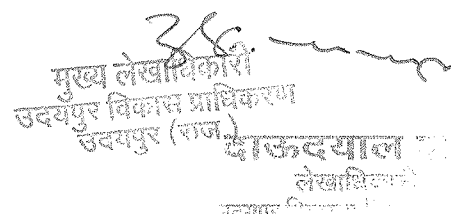 मुख्य लेखाधिकारी
उदयपुर विकास प्राधिकरण
उदयपुर (राज.)
दाऊदयाल
लेखाधिकारी